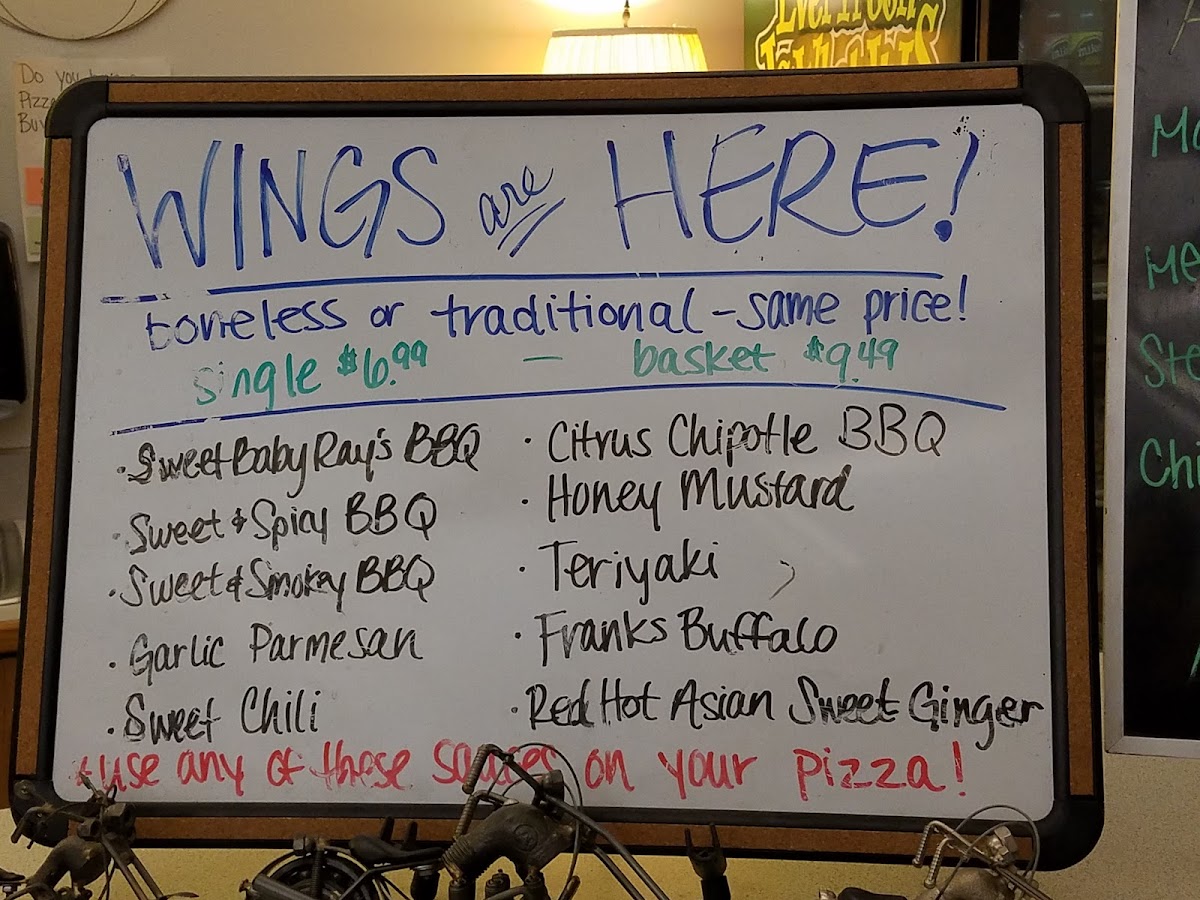 Do you
Pizza
WINGS are HERE!
boneless or traditional - same price!
single $6.99 - basket $9.49
· Sweet Baby Ray's BBQ
· Sweet & Spicy BBQ
· Sweet & Smokey BBQ
· Garlic Parmesan
· Sweet Chili
· Citrus Chipotle BBQ
· Honey Mustard
· Teriyaki
· Franks Buffalo
· Red Hot Asian Sweet Ginger
use any of these sauces on your pizza!